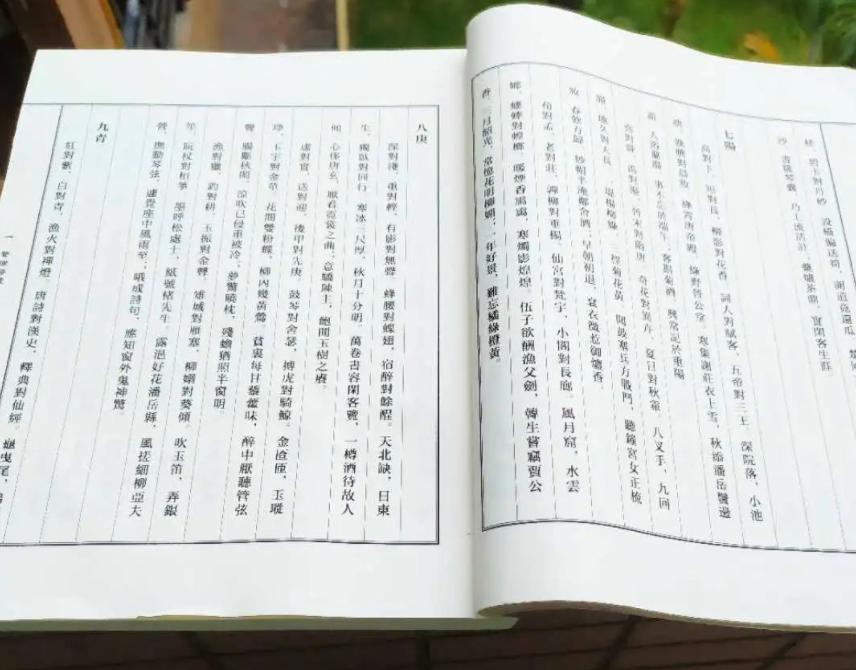 七陽
高對下，短對長，柳影對花香。詞人對賦客，五帝對三王。深院落，小池
塘。晚眺對晨妝。絳霄唐帝殿，綠野晉公堂。寒集謝莊衣上雪，秋添潘岳鬢邊
霜。人浴蘭湯，事不忘於端午；客斟菊酒，興常記於重陽。
堯對舜，禹對湯，晉宋對隋唐。奇花對異卉，夏日對秋霜。八叉手，九回
腸。地久對天長。一堤楊柳綠，三徑菊花黃。聞鼓塞兵方戰鬥，聽鐘宮女正梳
妝。春飲方歸，紗帽半淹鄰舍酒；早朝初退，袞衣微惹御爐香。
荀對孟，老對莊，嚲柳對垂楊。仙宮對梵宇，小閣對長廊。風月窟，水雲
鄉。蟋蟀對螳螂。暖煙香靄靄，寒燭影煌煌。伍子欲酬漁父劍，韓生嘗竊賈公
香。三月韶光，常憶花明柳媚；一年好景，難忘橘綠橙黃。
八庚
深對淺，重對輕，有影對無聲。蜂腰對蝶翅，宿醉對餘酲。天北缺，日東
生。獨臥對同行。寒冰三尺厚，秋月十分明。萬卷書容閒客覽，一樽酒待故人
傾。心侈唐玄，厭看霓裳之曲；意驕陳主，飽聞玉樹之賡。
虛對實，送對迎，後甲對先庚。鼓琴對舍瑟，搏虎對騎鯨。金匼匝，玉瑽
琤。玉宇對金莖。花間雙粉蝶，柳內幾黃鶯。貧裏每甘藜藿味，醉中厭聽管弦
聲。腸斷秋閨，涼吹已侵重被冷；夢驚曉枕，殘蟾猶照半窗明。
漁對獵，釣對耕，玉振對金聲。雉城對雁塞，柳嫋對葵傾。吹玉笛，弄銀
笙。阮杖對桓箏。墨呼松處士，紙號楮先生。露浥好花潘岳縣，風搓細柳亞夫
營。撫動琴弦，遽覺座中風雨至；哦成詩句，應知窗外鬼神驚。
九青
紅對紫，白對青，漁火對禪燈。唐詩對漢史，釋典對仙經。龜曳尾，